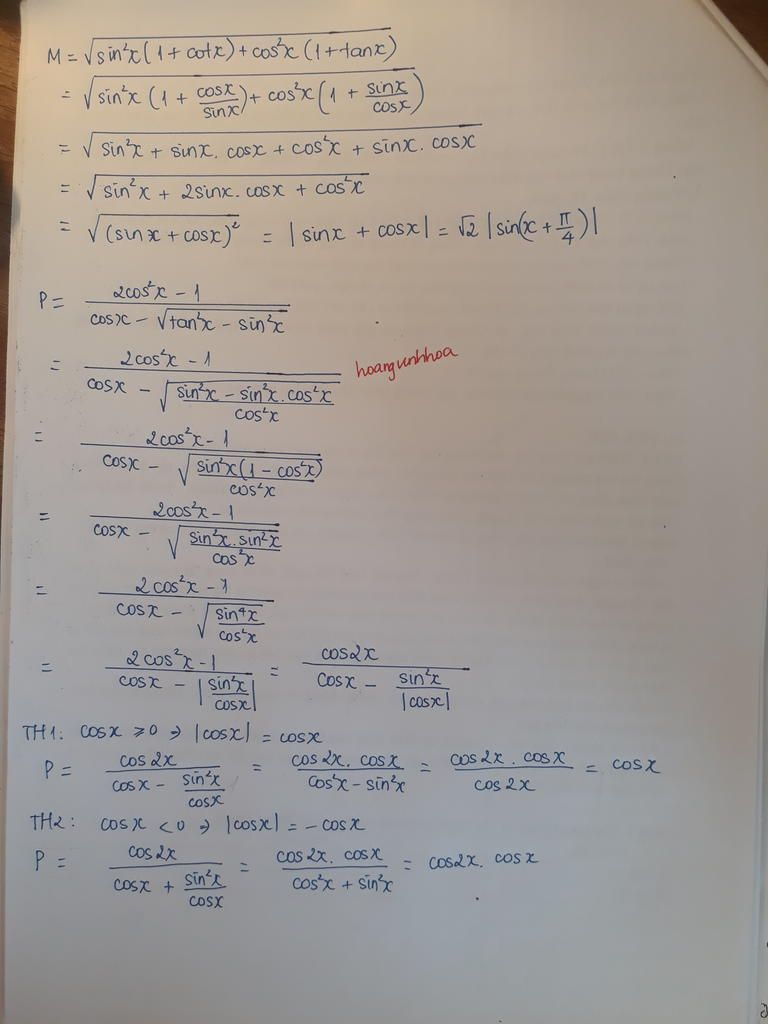 M = √(sin²x(1 + cotx) + cos²x (1 + tanx))
= √(sin²x (1 + cosx/sinx) + cos²x (1 + sinx/cosx))
= √(sin²x + sinx. cosx + cos²x + sinx. cosx)
= √(sin²x + 2sinx. cosx + cos²x)
= √((sinx + cosx)²) = |sinx + cosx| = √2 |sin(x + π/4)|
P = (2cos²x - 1)/(cosx - √(tan²x - sin²x))
= (2cos²x - 1)/(cosx - √((sin²x - sin²x. cos²x)/cos²x))
hoangunhhoa
= (2cos²x - 1)/(cosx - √((sin²x(1 - cos²x))/cos²x))
= (2cos²x - 1)/(cosx - √((sin²x. sin²x)/cos²x))
= (2cos²x - 1)/(cosx - √(sin⁴x/cos²x))
= (2cos²x - 1)/(cosx - |sin²x/cosx|) = cos2x/(cosx - sin²x/|cosx|)
TH1: cosx ≥ 0 ⇒ |cosx| = cosx
P = cos2x/(cosx - sin²x/cosx) = (cos2x. cosx)/(cos²x - sin²x) = (cos2x. cosx)/cos2x = cosx
TH2: cosx < 0 ⇒ |cosx| = - cosx
P = cos2x/(cosx + sin²x/cosx) = (cos2x. cosx)/(cos²x + sin²x) = cos2x. cosx